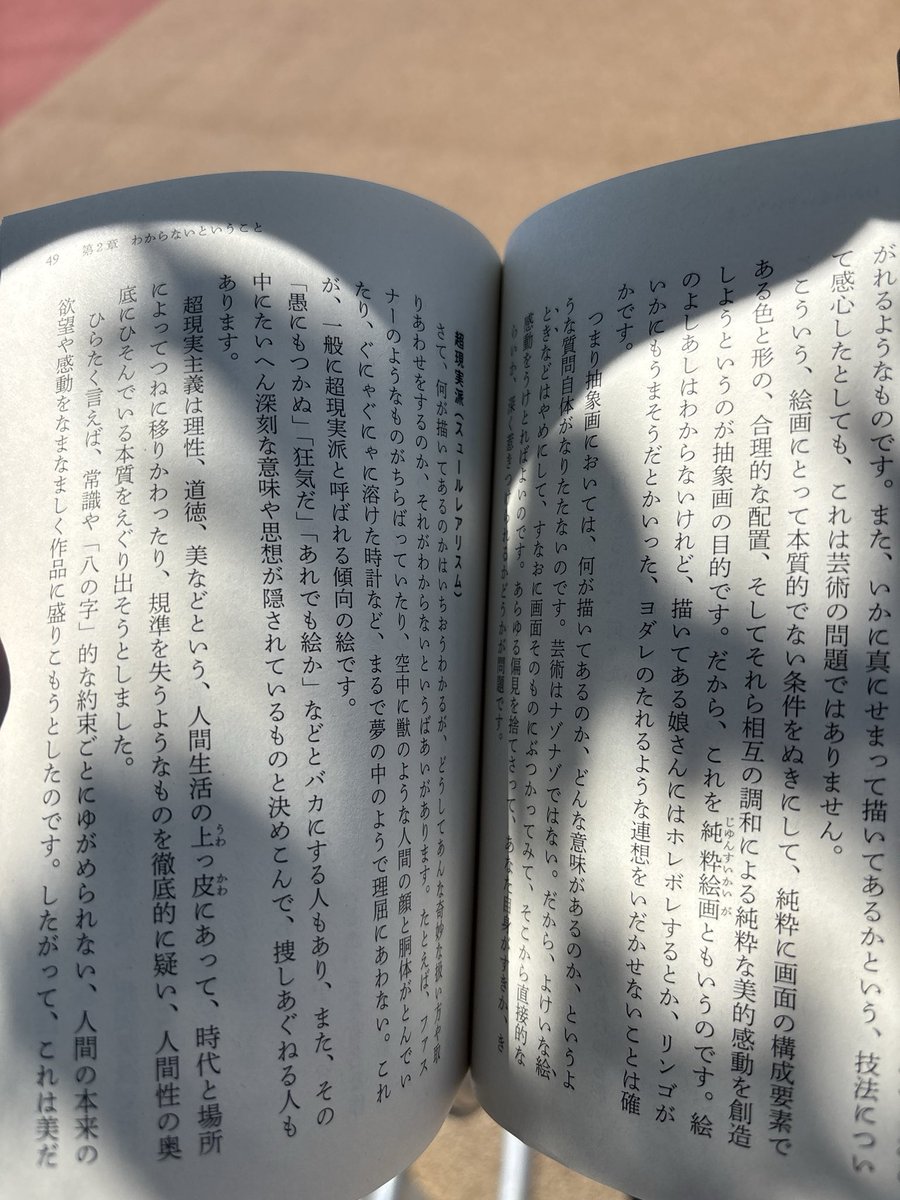 がれるようなものです。また、いかに真にせまって描いてあるかという、技法につい
て感心したとしても、これは芸術の問題ではありません。
こういう、絵画にとって本質的でない条件をぬきにして、純粋に画面の構成要素で
ある色と形の、合理的な配置、そしてそれら相互の調和による純粋な美的感動を創造
しようというのが抽象画の目的です。だから、これを純粋絵画ともいうのです。絵
のよしあしはわからないけれど、描いてある娘さんにはホレボレするとか、リンゴが
いかにもうまそうだとかいった、ヨダレのたれるような連想をいだかせないことは確
かです。
つまり抽象画においては、何が描いてあるのか、どんな意味があるのか、というよ
うな質問自体がなりたたないのです。芸術はナゾナゾではない。だから、よけいな絵
ときなどはやめにして、すなおに画面そのものにぶつかってみて、そこから直接的な
感動をうけとればよいのです。あらゆる偏見を捨てさって、あなた自身がすきか、き
らいか、深く惹きつけられるかどうかが問題です。
49 第2章 わからないということ
超現実派(スュールレアリスム)
さて、何が描いてあるのかはいちおうわかるが、どうしてあんな奇妙な扱い方や取
りあわせをするのか、それがわからないというばあいがあります。たとえば、ファス
ナーのようなものがちらばっていたり、空中に獣のような人間の顔と胴体がとんでい
たり、ぐにゃぐにゃに溶けた時計など、まるで夢の中のようで理屈にあわない。これ
が、一般に超現実派と呼ばれる傾向の絵です。
「愚にもつかぬ」「狂気だ」「あれでも絵か」などとバカにする人もあり、また、その
中にたいへん深刻な意味や思想が隠されているものと決めこんで、捜しあぐねる人も
あります。
超現実主義は理性、道徳、美などという、人間生活の上っ皮にあって、時代と場所
によってつねに移りかわったり、規準を失うようなものを徹底的に疑い、人間性の奥
底にひそんでいる本質をえぐり出そうとしました。
ひらたく言えば、常識や「八の字」的な約束ごとにゆがめられない、人間の本来の
欲望や感動をなまなましく作品に盛りこもうとしたのです。したがって、これは美だ